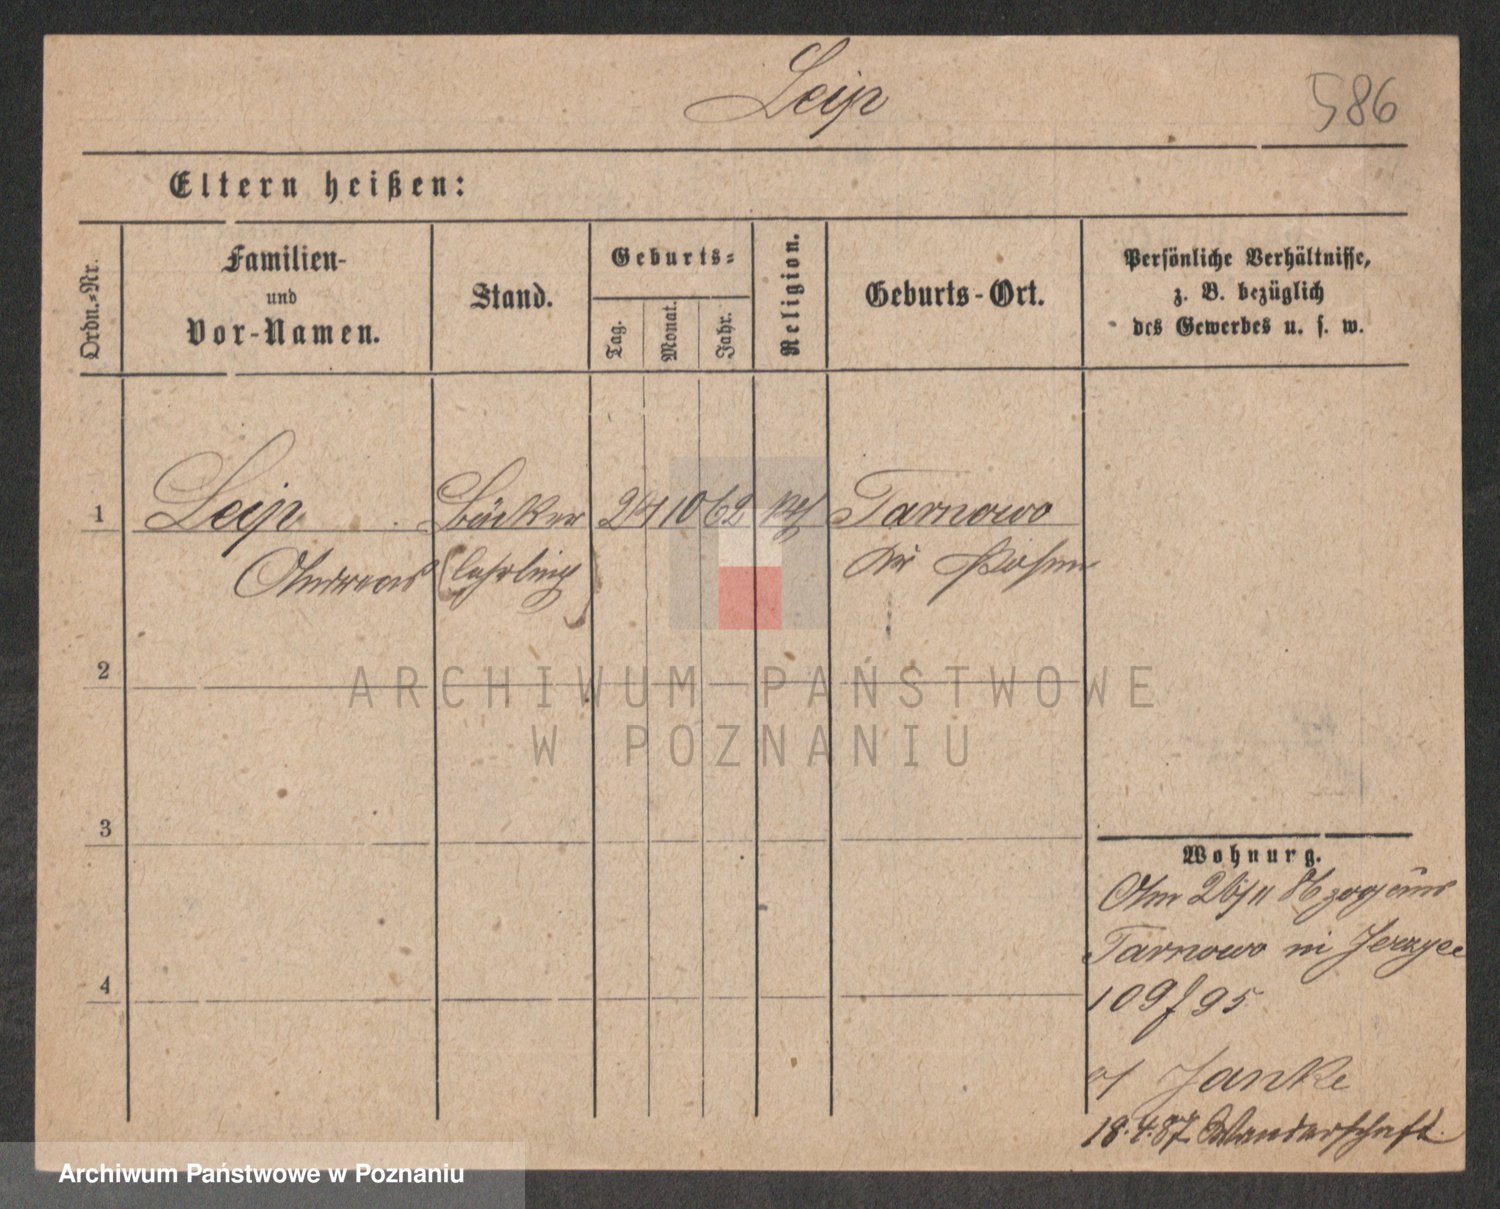 Leip
586
Eltern heißen:
Ordn.-Nr.
Familien-
und
Vor-Namen.
Stand.
Geburts-
Tag.
Monat.
Jahr.
Religion.
Geburts-Ort.
Persönliche Verhältnisse,
z. B. bezüglich
des Gewerbes u. s. w.
1 Leip Bäcker 24 10 62 Tarnowo
Andreas (Lehrling) Kr Posen
2
ARCHIWUM PAŃSTWOWE
W POZNANIU
3
4
Wohnurg.
Am 26/11 86 zog aus
Tarnowo in Jerzyce
109 f 95
Janke
18.4.87. Wanderschaft.
Archiwum Państwowe w Poznaniu